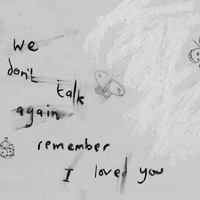 We
don't
talk
again
remember
I loved you